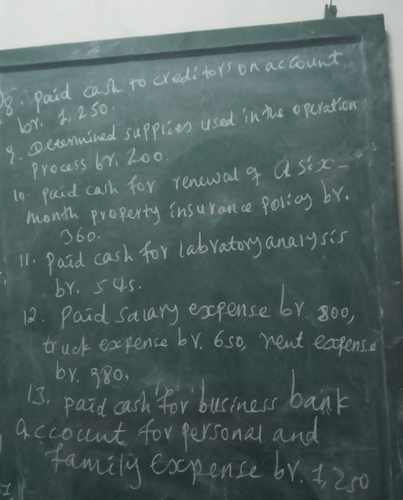 8. paid cash to creditors on account
br. 1,250.
9. Determined supplies used in the operation
process br. 200.
10. paid cash for renewal of a six-
month property insurance policy br.
360.
11. paid cash for labratory analysis
br. 545.
12. paid salary expense br. 800,
truck expense br. 650, rent expense
br. 980.
13. paid cash for business bank
account for personal and
family expense br. 1,250